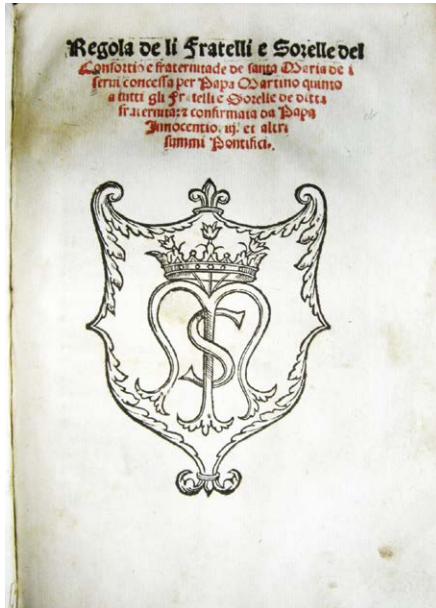 Regola de li Fratelli e Sorelle del
Consortio e fraternitade de santa Maria de i
serui concessa per Papa Martino quinto
a tutti gli Fratelli e Sorelle de ditta
fraternitate confirmata da Papa
Innocentio. et altri
summi Pontifici.
MS